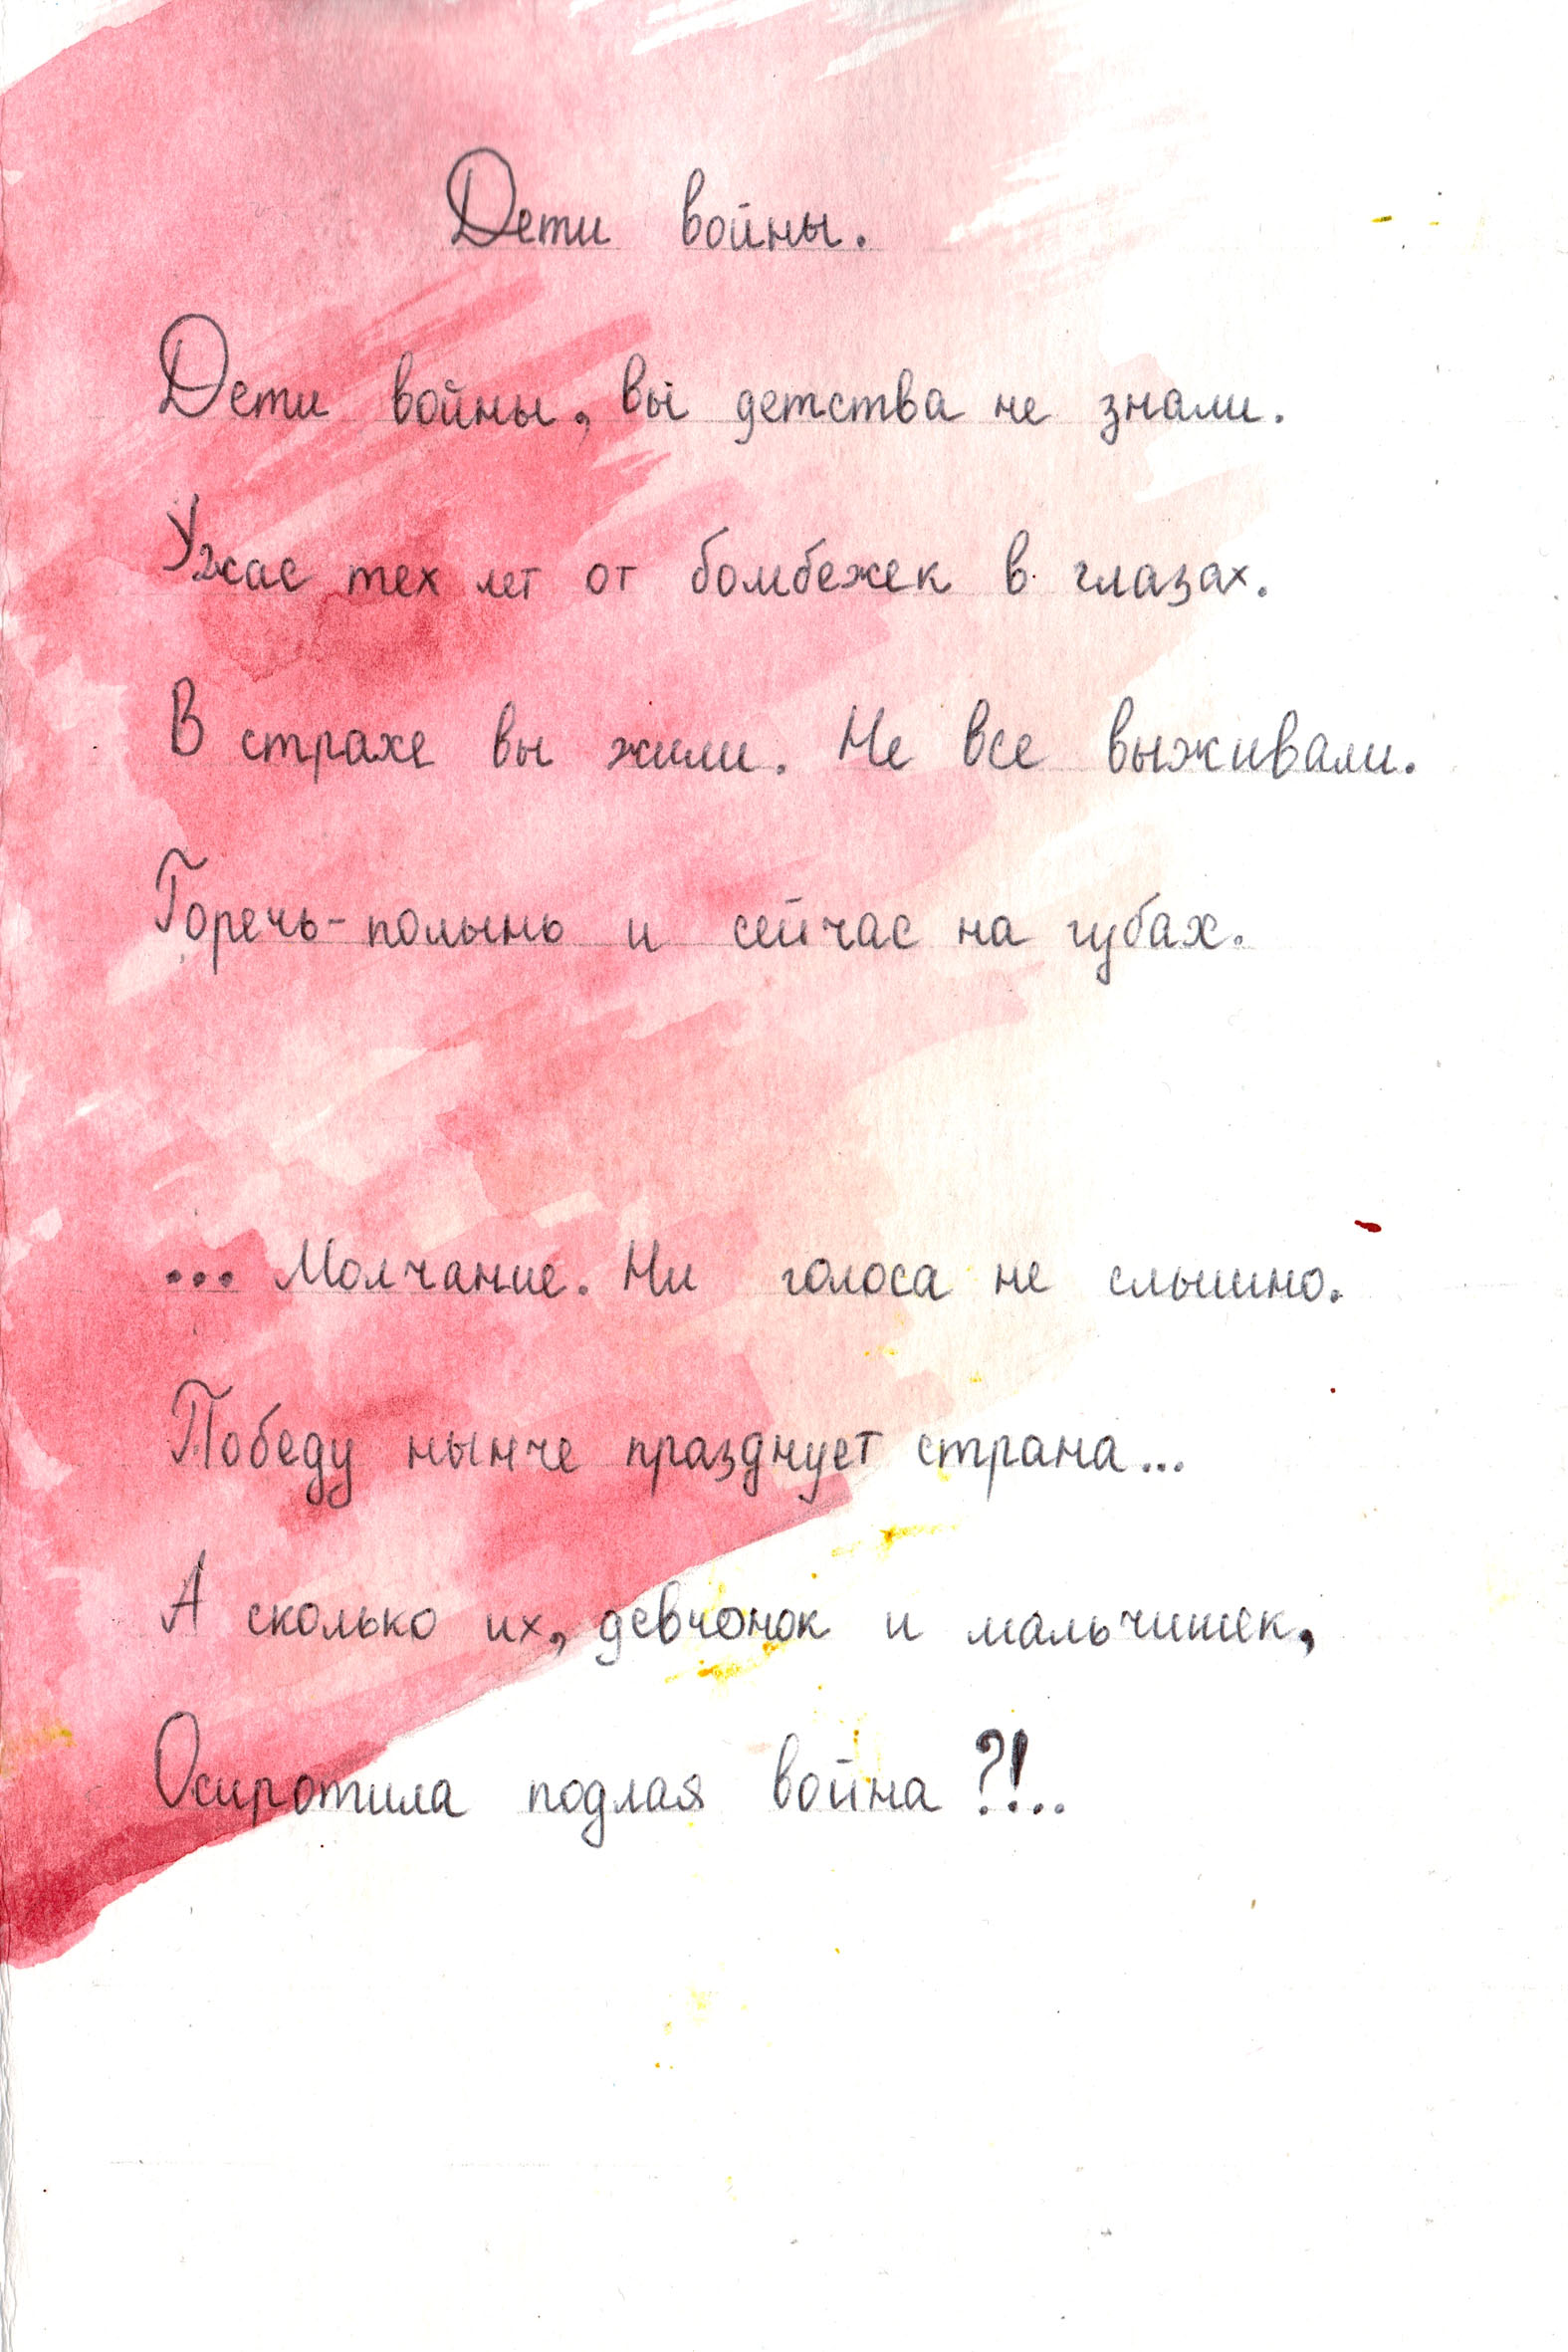 Дети войны.
Дети войны, вы детства не знали.
Ужас тех лет от бомбежек в глазах.
В страхе вы жили. Не все выживали.
Горечь-полынь и сейчас на губах.
... Молчание. Ни голоса не слышно.
Победу нынче празднует страна...
А сколько их, девчонок и мальчишек,
Осиротила подлая война?!..